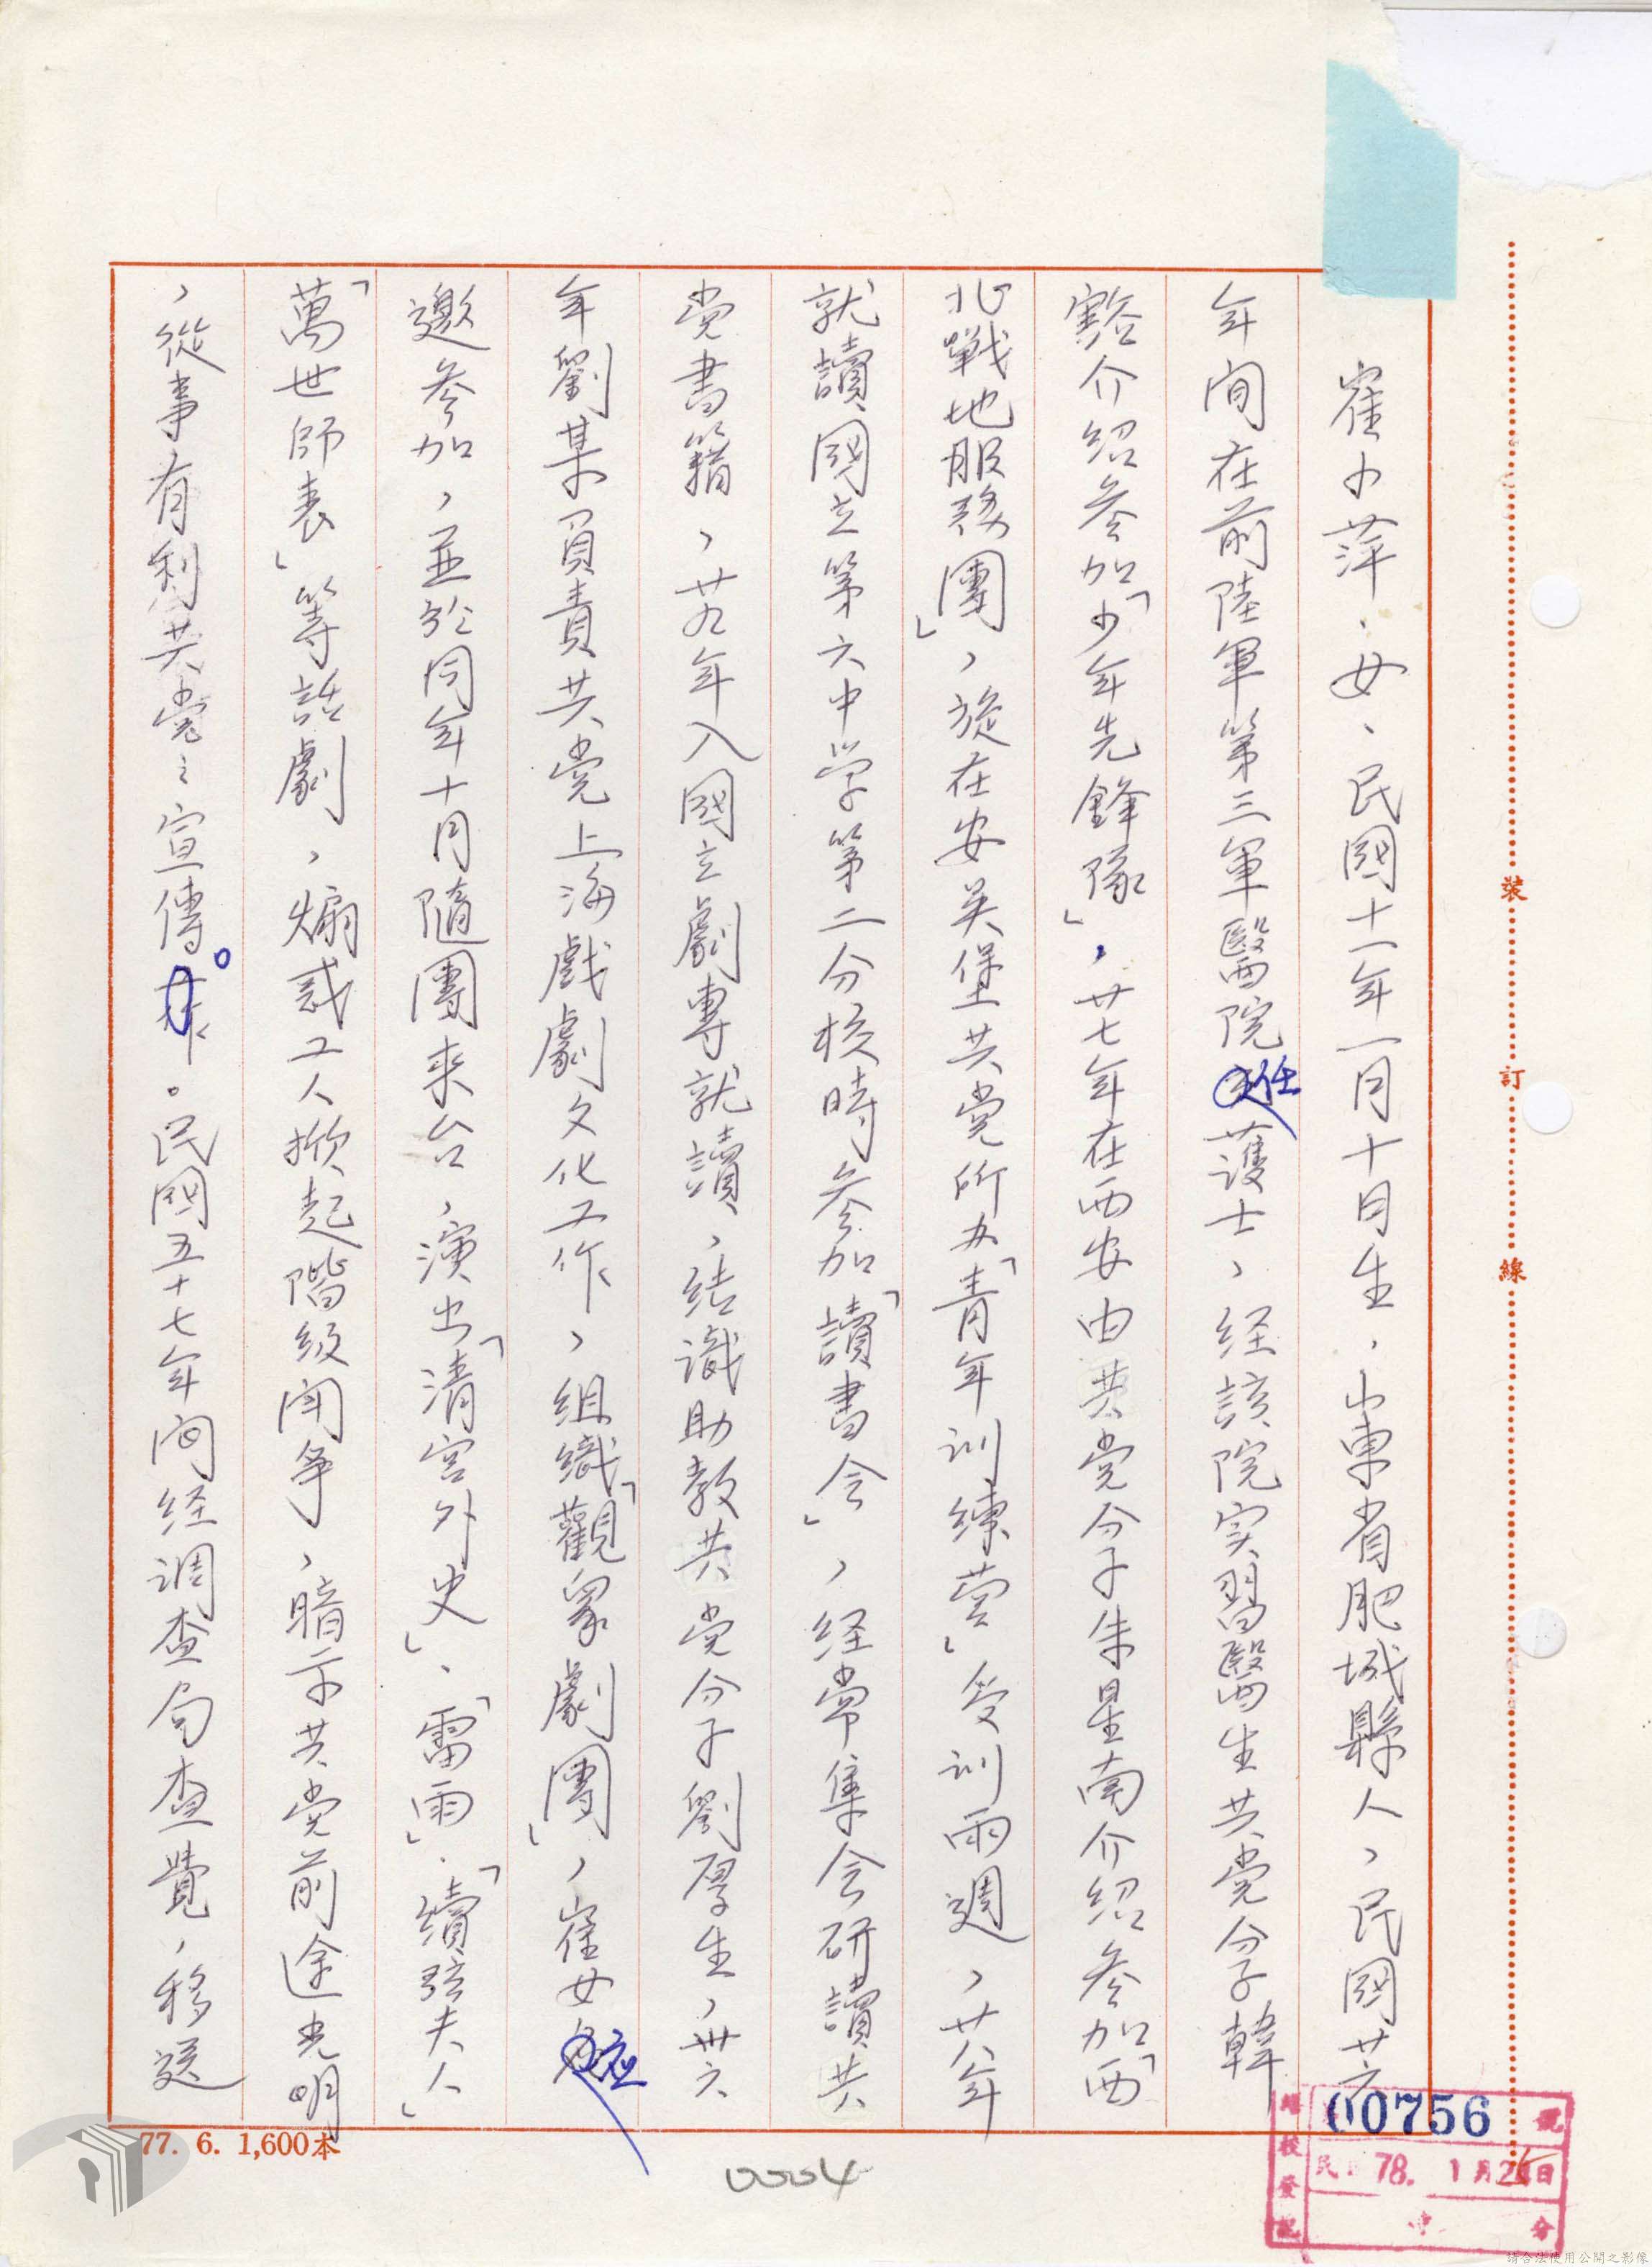 崔小萍、女、民國十一年一月十日生，山東省肥城縣人，民國廿六
年间在前陸軍第三軍醫院任護士，经該院实習醫生共党分子韓
豁介绍参加「少年先鋒隊」，廿七年在西安由共党分子朱星南介绍参加「西
北戰地服務團」，旋在安吴堡共党所办「青年训練营」受训兩週，廿八年
就讀國立第六中学第二分校時参加「讀書会」，经常集会研讀共
党書籍，廿九年入國立劇專就讀，结識助教共党分子劉厚生，卅六
年劉某負責共党上海戲劇文化工作，組織「觀眾劇團」，崔女應
邀参加，並於同年十月隨團来台，演出「清宮外史」、「雷雨」、「續弦夫人」
「萬世師表」等話劇，煽惑工人掀起階级闘争，暗示共党前途光明
，從事有利共党之宣傳。民國五十七年间经调查局查覺，移送
裝訂線
00756
號
民國78.1月2日
分
77. 6. 1,600本
0004
請合法使用公開之影像